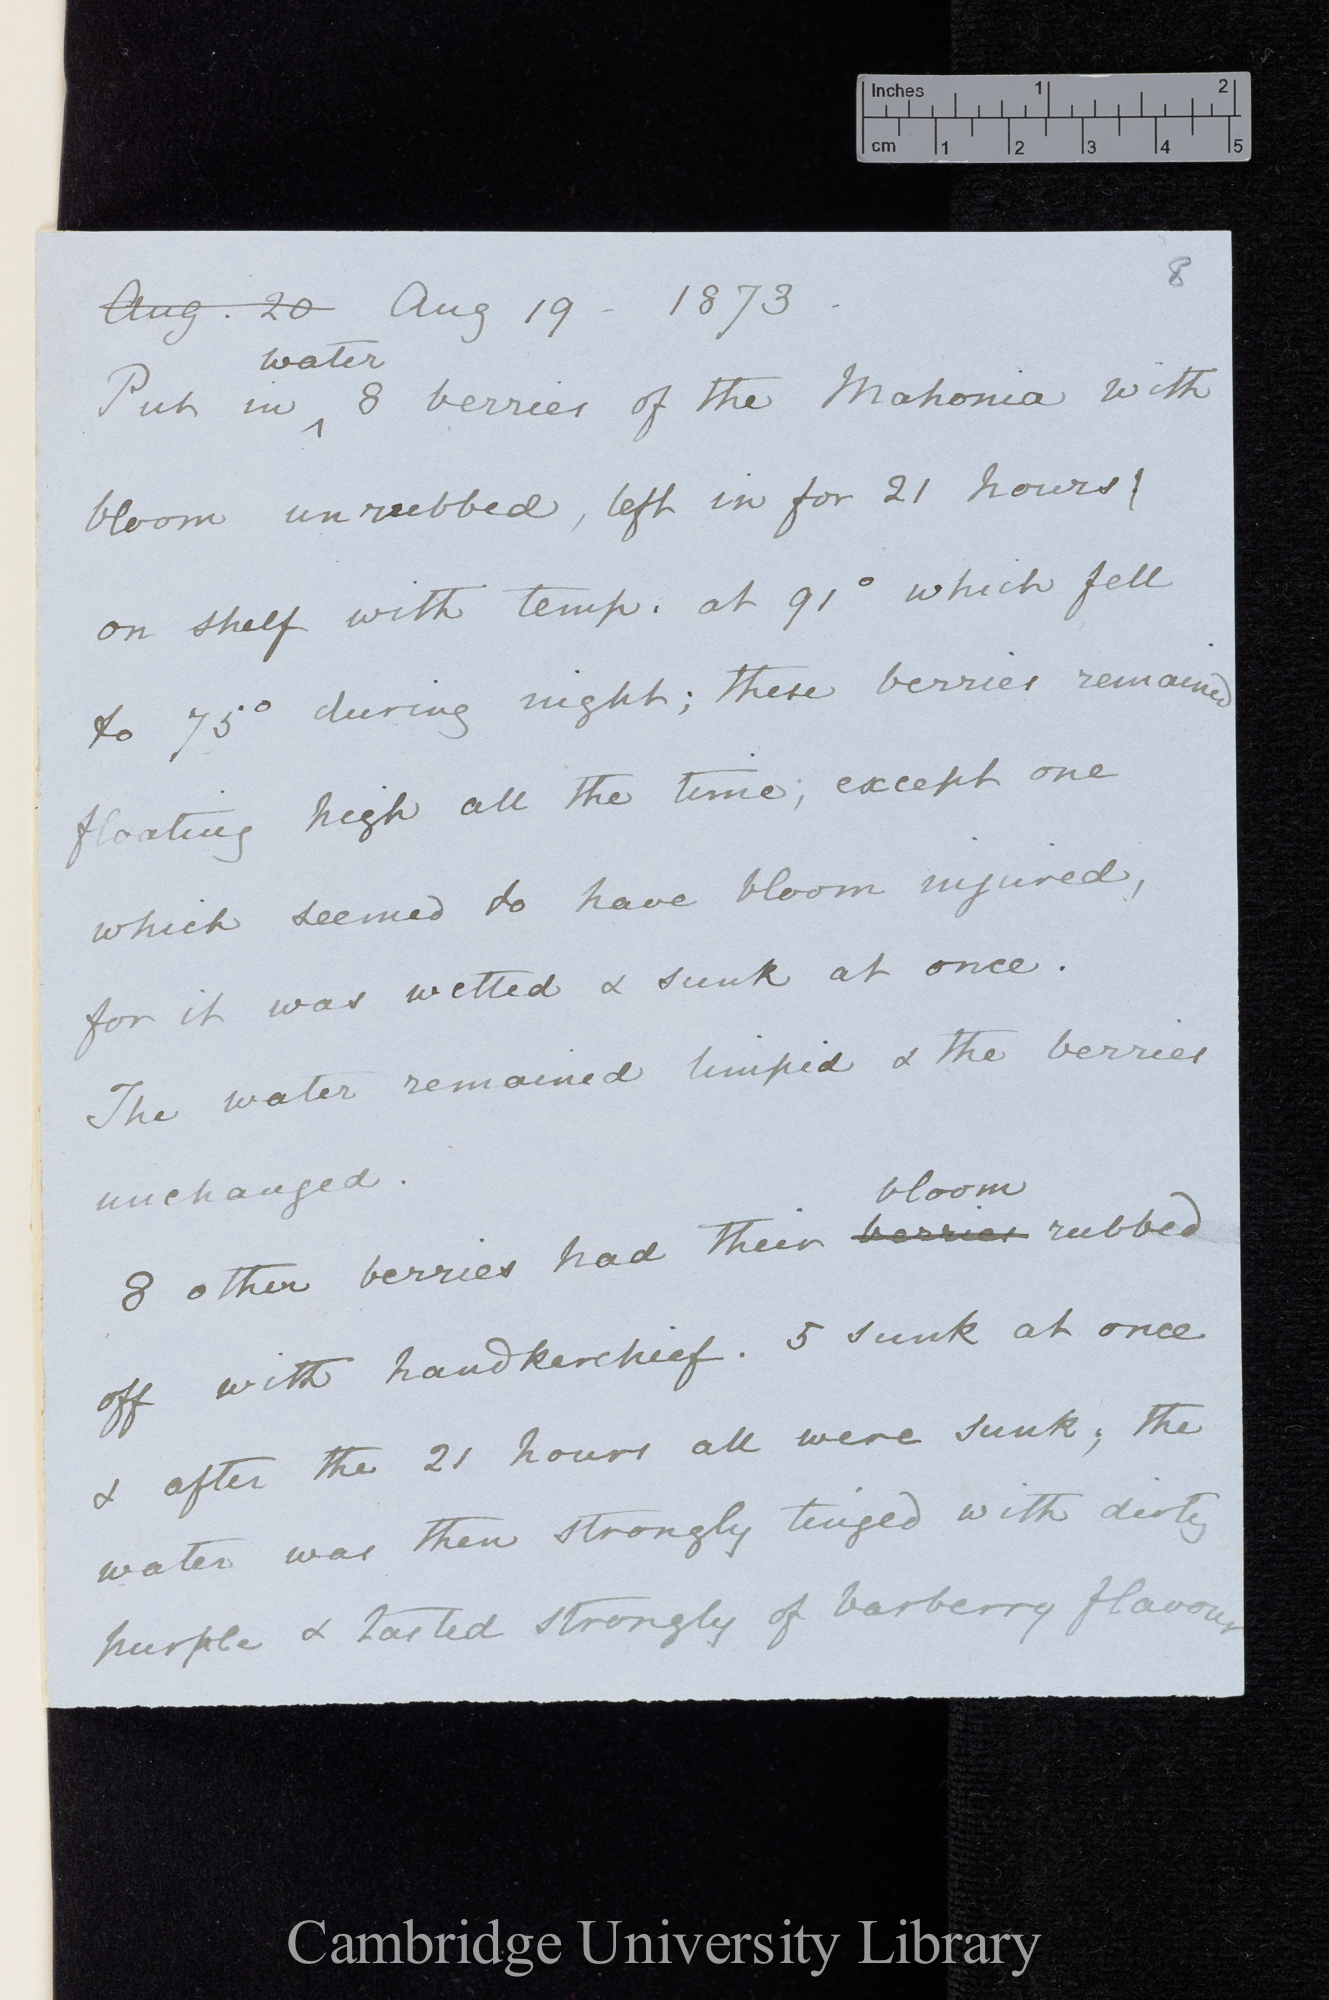 Inches 1 2
cm 1 2 3 4 5
8
Aug. 20 Aug 19 - 1873 -
water
Put in ^ 8 berries of the Mahonia with
bloom unrubbed, left in for 21 hours
on shelf with temp. at 91° which fell
to 75° during night; these berries remained
floating high all the time; except one
which seemed to have bloom injured,
for it was wetted & sunk at once.
The water remained limpid & the berries
unchanged.
bloom
8 other berries had their berries rubbed
off with handkerchief. 5 sunk at once
& after the 21 hours all were sunk; the
water was then strongly tinged with dirty
purple & tasted strongly of barberry flavour
Cambridge University Library